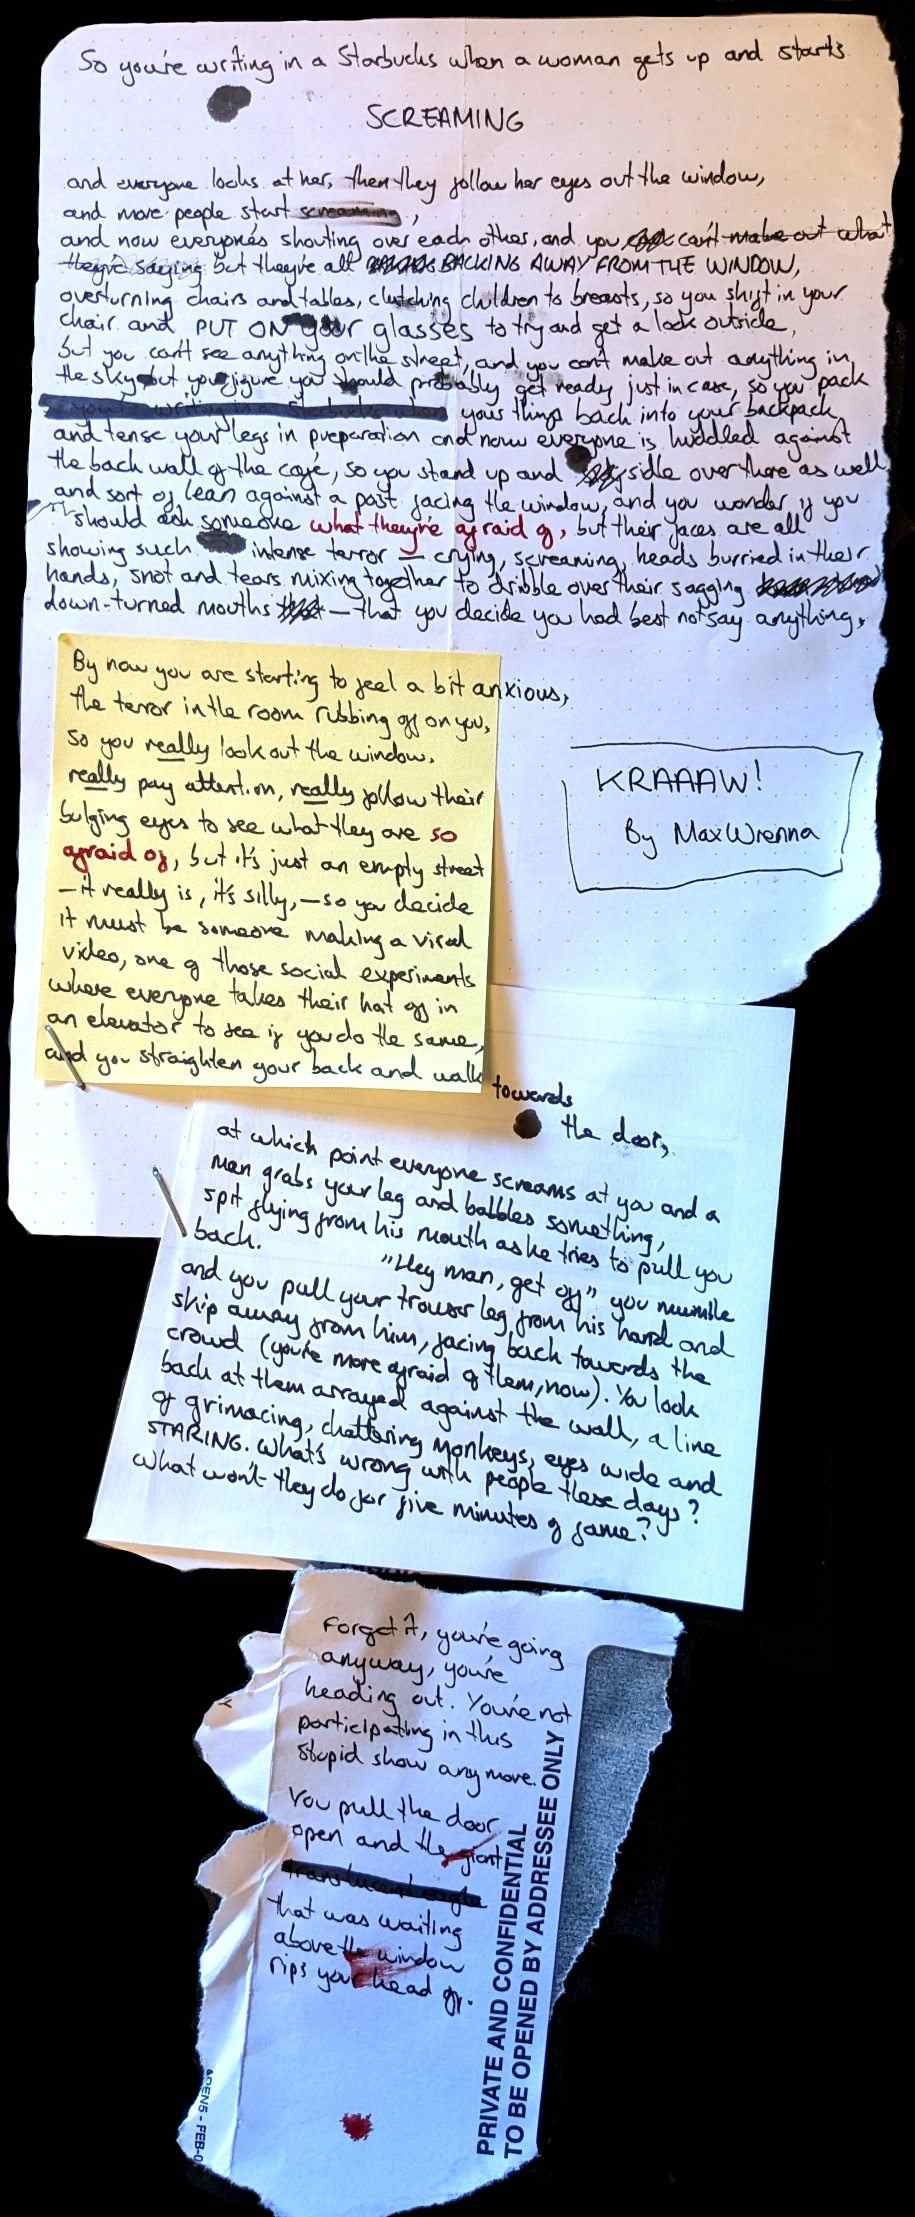 So you're writing in a Starbucks when a woman gets up and starts
SCREAMING
and everyone looks at her, then they follow her eyes out the window,
and more people start screaming,
and now everyone's shouting over each other, and you can't make out what
they're saying but they're all BACKING AWAY FROM THE WINDOW,
overturning chairs and tables, clutching children to breasts, so you shift in your
chair and PUT ON your glasses to try and get a look outside,
but you can't see anything on the street, and you can't make out anything in
the sky but you figure you should probably get ready just in case, so you pack
your things back into your backpack
and tense your legs in preparation and now everyone is huddled against
the back wall of the café, so you stand up and sidle over there as well
and sort of lean against a post facing the window, and you wonder if you
should ask someone what they're afraid of, but their faces are all
showing such intense terror — crying, screaming, heads burried in their
hands, snot and tears mixing together to dribble over their sagging
down-turned mouths — that you decide you had best not say anything,
By now you are starting to feel a bit anxious,
the terror in the room rubbing off on you,
so you really look out the window.
really pay attention, really follow their
bulging eyes to see what they are so
afraid of, but it's just an empty street
— it really is, it's silly, — so you decide
it must be someone making a viral
video, one of those social experiments
where everyone takes their hat off in
an elevator to see if you do the same,
and you straighten your back and walk
towards
the door,
KRAAAW!
By Max Wrenna
at which point everyone screams at you and a
man grabs your leg and babbles something,
spit flying from his mouth as he tries to pull you
back.
"Hey man, get off" you mumble
and you pull your trouser leg from his hand and
skip away from him, facing back towards the
crowd (you're more afraid of them, now). You look
back at them arrayed against the wall, a line
of grimacing, chattering monkeys, eyes wide and
STARING. What's wrong with people these days?
What won't they do for five minutes of fame?
Forget it, you're going
anyway, you're
heading out. You're not
participating in this
stupid show anymore.
You pull the door
open and the giant
translucent eagle
that was waiting
above the window
rips your head off.
PRIVATE AND CONFIDENTIAL
TO BE OPENED BY ADDRESSEE ONLY